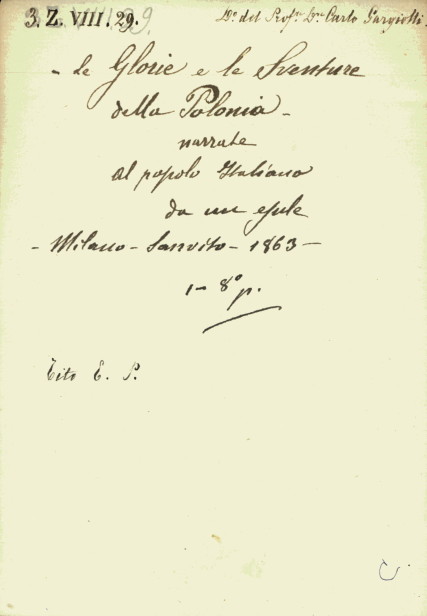 3. Z. VIII. 29.
Do del Profre Dre Carlo
- Le Glorie e le Sventure
della Polonia -
narrate
al popolo Italiano
da un esule
- Milano - Sanvito - 1863 -
1 - 8° p.
Tito E. P.